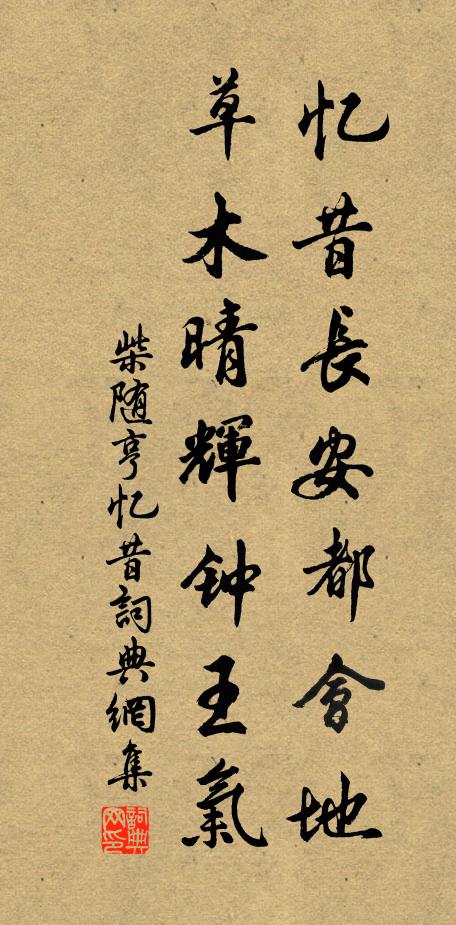 忆昔長安都會地
草木晴輝钟王氣
柴随亨忆昔詞典網集
詞典网印